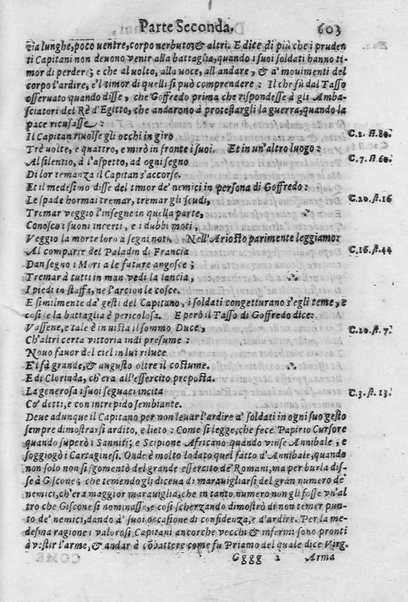 Parte Seconda. 603
zia lunghe, poco uentre, corpo nerbuto, & altri. E dice di più che i pruden
ti Capitani non deuono venir alla battaglia, quando i suoi soldati hanno ti-
mor di perder; e che al volto, alla voce, all'andare, & a' mouimenti del
corpo l'ardire, e'l timor di quelli si può comprendere: Il che fù dal Tasso
osseruato quando disse, che Goffredo prima che rispondesse à gli Amba-
sciatori del Rè d'Egitto, che andarono à protestargli la guerra, quando la
pace ricusasse:
Il Capitan riuolse gli occhi in giro C.2. st.80.
Tre volte, e quattro, e mirò in fronte i suoi. Et in vn'altro luogo:
Al silentio, à l'aspetto, ad ogni segno C.7. st.60.
Di lor temanza il Capitan s'accorse.
Et il medesimo disse del timor de' nemici in persona di Goffredo:
Le spade hormai tremar, tremar gli scudi, C.20. st.16
Tremar veggio l'insegne in quella parte,
Conosco i suoni incerti, e i dubbi moti,
Veggio la morte loro a segni noti. Nell'Ariosto parimente leggiamo:
Al comparir del Paladin di Francia C.16. st.44
Dan segno i Mori à le future angosce;
Tremare à tutti in man vedi la lancia,
I piedi in staffa, ne l'arcion le cosce.
E similmente da' gesti del Capitano, i soldati congetturano s'egli teme, e
così e la battaglia è pericolosa. E però il Tasso di Goffredo dice:
Vassene, e tale è in uista il sommo Duce, C.20. st.7.
Ch'altri certa vittoria indi presume:
Nouo fauor del ciel in lui riluce
E'l fà grande, & augusto oltre il costume.
E di Clorinda, ch'era all'essercito preposta.
La generosa i suoi seguaci incita C.3. st.13.
Co' detti, e con intrepido sembiante.
Deue adunque il Capitano per non leuar l'ardire a' soldati in ogni suo gesto
sempre dimostrarsi ardito, e lieto: Come si legge, che fece Papirio Cursore
quando superò i Sanniti; e Scipione Africano quando vinse Annibale, e
soggiogò i Cartaginesi. Onde è molto lodato quel fatto d'Annibale, quando
non solo non si sgomentò del grande essercito de' Romani, ma per burla dis-
se à Giscone; che temendo gli diceua di marauigliarsi del gran numero de'
nemici, ch'era maggior marauiglia, che in tanto numero non gli fosse vn'al
tro che Giscone si nominasse, e così scherzando dimostrò di non temer pun-
to de' nemici, dando a' suoi occasione di confidenza, e d'ardire. Per la me-
desima ragione i valorosi Capitani ancorche vecchi & infermi sono pronti
à vestir l'arme, & andar à cõbattere come fu Priamo del quale dice Virg.
Gggg 2 Arma